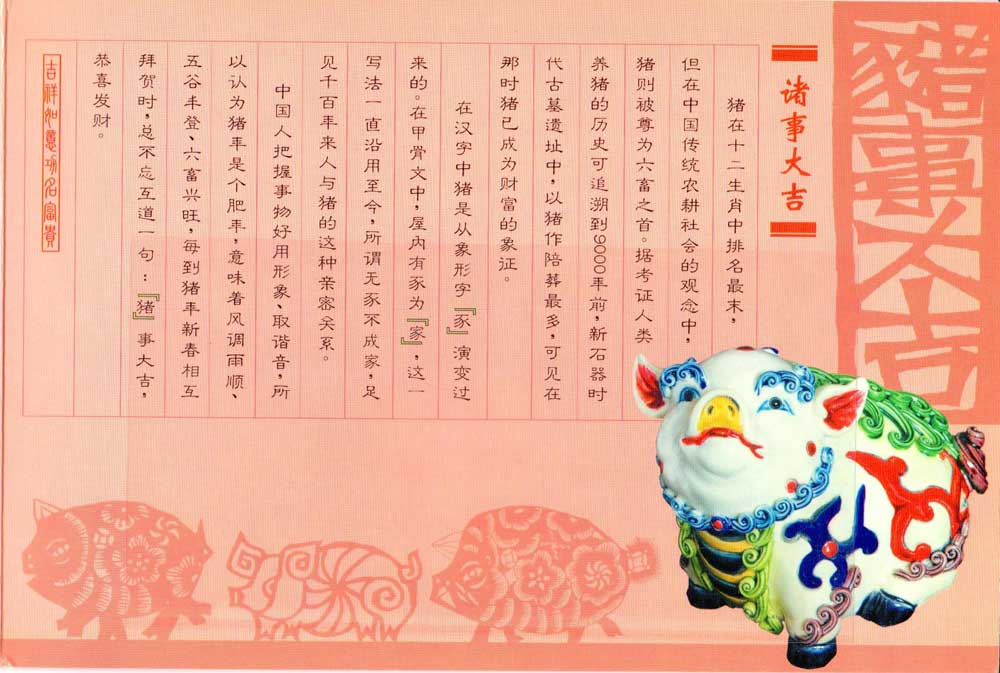 豬事大吉
诸事大吉
猪在十二生肖中排名最末，
但在中国传统农耕社会的观念中，
猪则被尊为六畜之首。据考证人类
养猪的历史可追溯到9000年前，新石器时
代古墓遗址中，以猪作陪葬最多，可见在
那时猪已成为财富的象征。
在汉字中猪是从象形字『豕』演变过
来的。在甲骨文中，屋内有豕为『家』，这一
写法一直沿用至今，所谓无豕不成家，足
见千百年来人与猪的这种亲密关系。
中国人把握事物好用形象、取谐音，所
以认为猪年是个肥年，意味着风调雨顺、
五谷丰登、六畜兴旺，每到猪年新春相互
拜贺时，总不忘互道一句：『猪』事大吉，
恭喜发财。
吉祥如意功名富貴